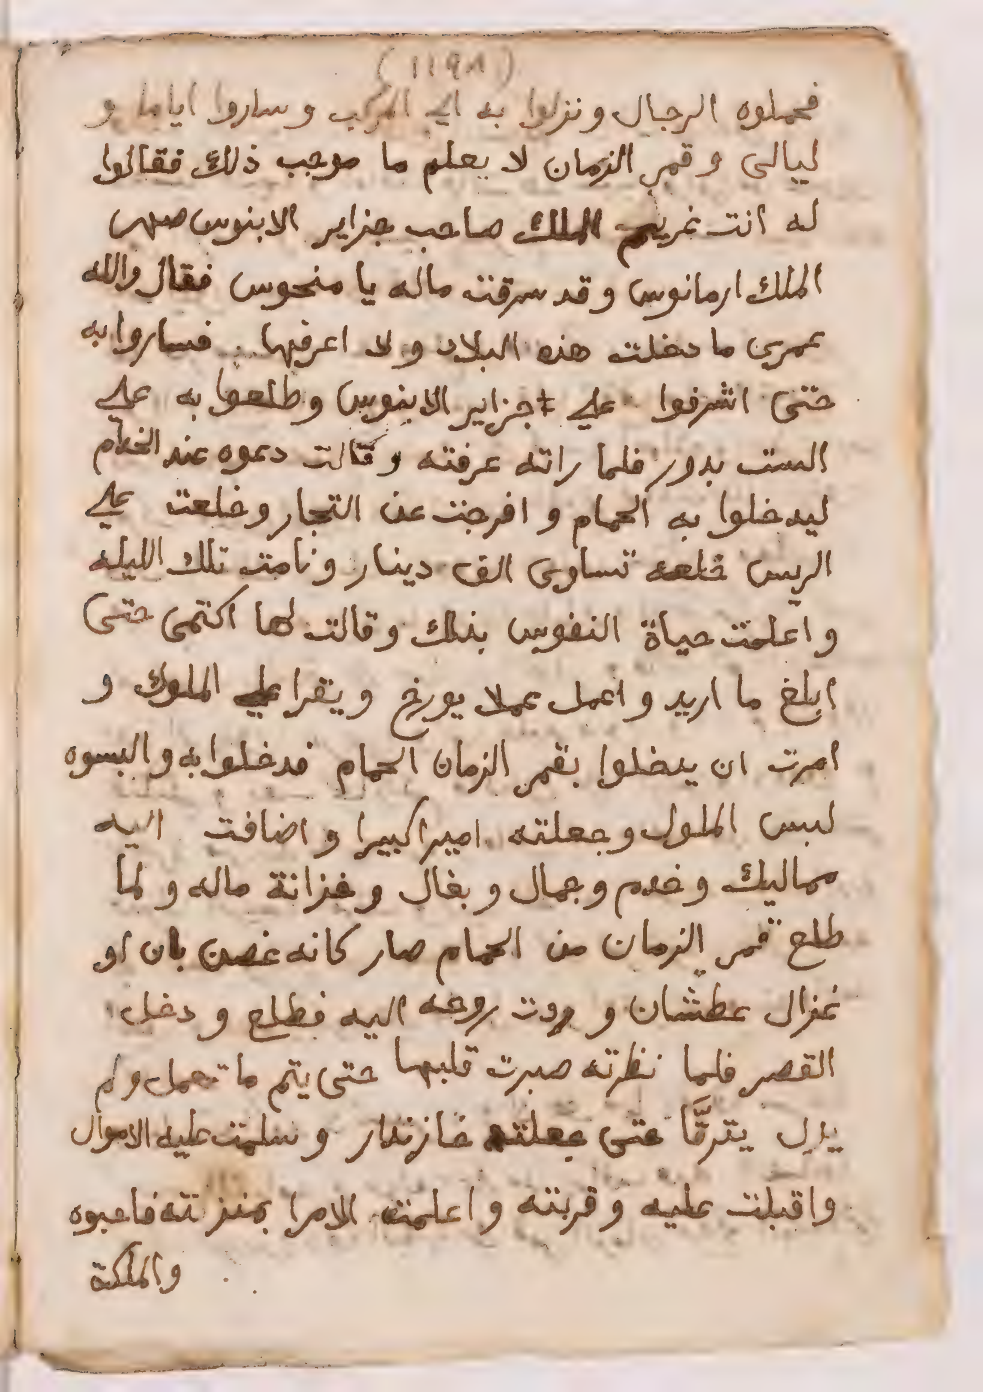 (١١٩٨)
فحملوه الرجال ونزلوا به الي المركب وساروا اياما و
ليالي وقمر الزمان لا يعلم ما موجب ذلك فقالوا
له انت غريم الملك صاحب جزاير الابنوس صهر
الملك ارمانوس وقد سرقت ماله يا منحوس فقال والله
عمري ما دخلت هذه البلاد ولا اعرفها فساروا به
حتى اشرفوا علي جزاير الابنوس وطلعوا به علي
الست بدور فلما راته عرفته وقالت دعوه عند الخدام
ليدخلوا به الحمام وافرجت عن التجار وخلعت علي
الريس خلعه تساوى الف دينار ونامت تلك الليله
واعلمت حياة النفوس بذلك وقالت لها اكتمى حتى
ابلغ ما اريد واعمل عملا يورخ ويقرا علي الملوك و
امرت ان يدخلوا بقمر الزمان الحمام فدخلوا به والبسوه
لبس الملوك وجعلته اميرا كبيرا واضافت اليه
مماليك وخدم وجمال وبغال وخزانة ماله ولما
طلع قمر الزمان من الحمام صار كانه غصن بان او
غزال عطشان وردت روحه اليه فطلع ودخل
القصر فلما نظرته صبرت قلبها حتى يتم ما تعمل ولم
يزل يترقَّا حتى جعلته خازندار وسلمت عليه الاموال
واقبلت عليه وقربته واعلمت الامرا بمنزلته فاحبوه
والملكة